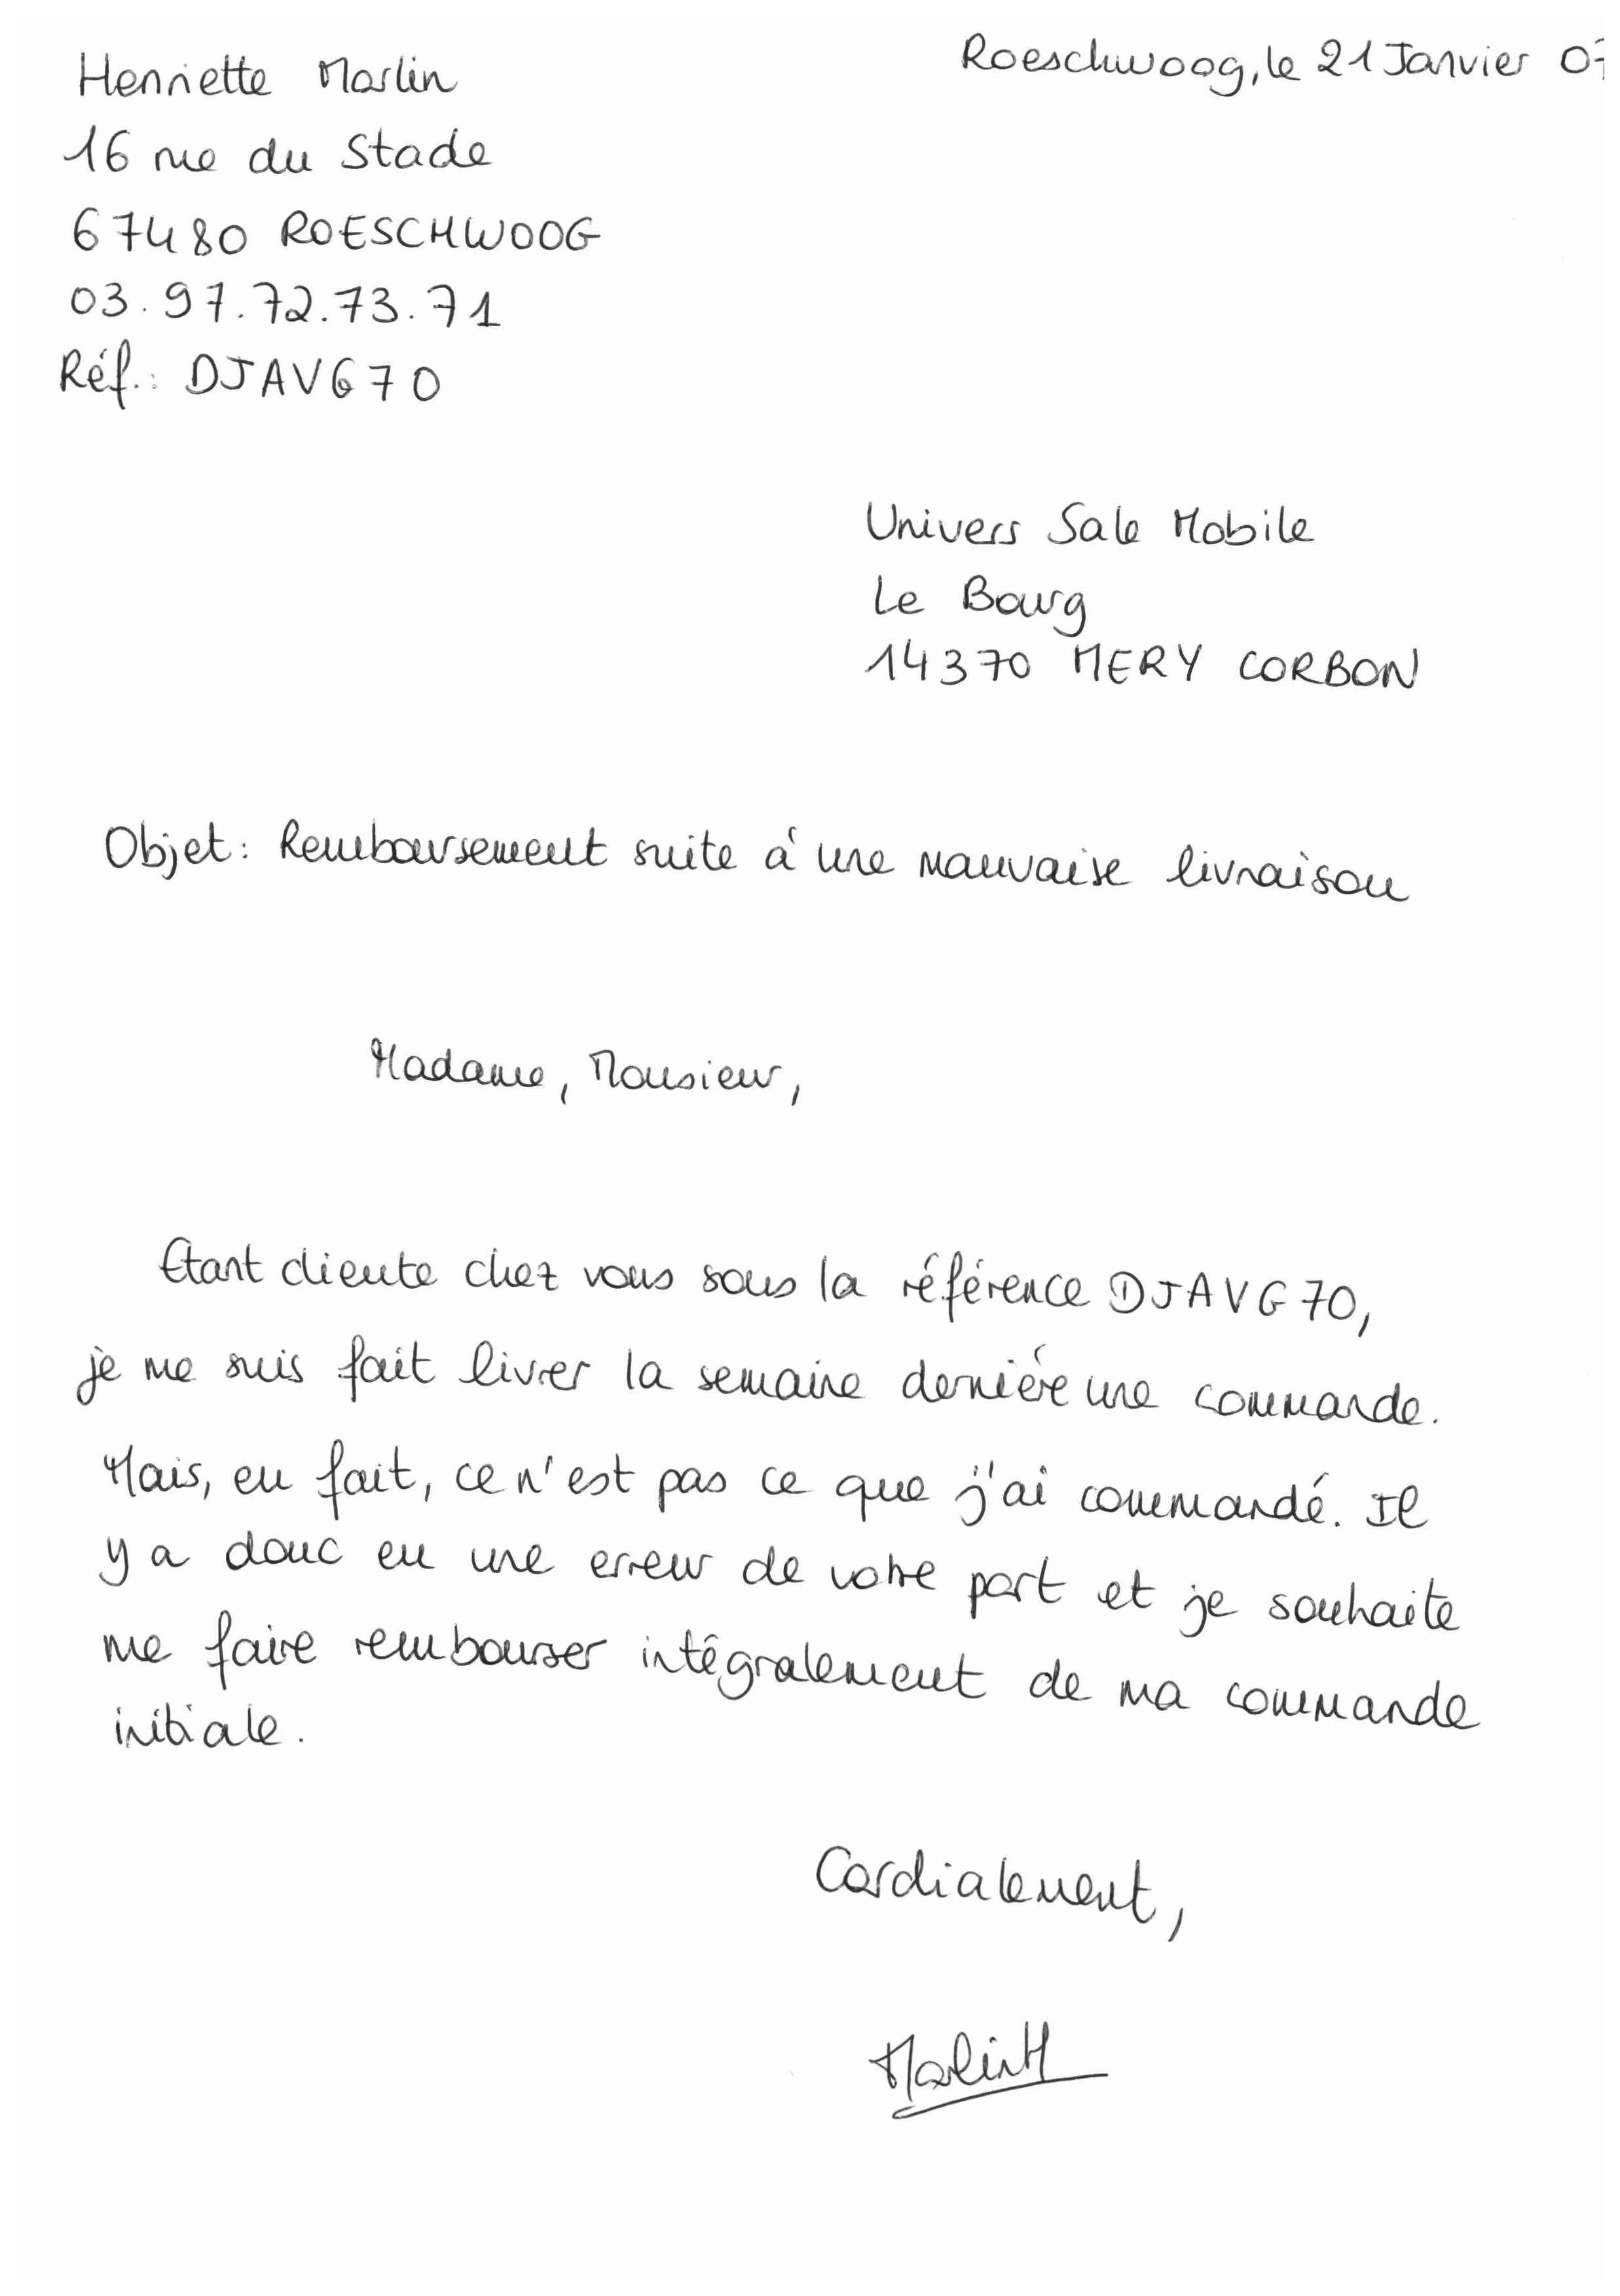 Henriette Marlin
Roeschwoog, le 21 Janvier 07
16 rue du Stade
67480 ROESCHWOOG
03.97.72.73.71
Réf.: DJAVG70
Univers Sale Mobile
Le Bourg
14370 MERY CORBON
Objet: Remboursement suite à une mauvaise livraison
Madame, Monsieur,
Etant cliente chez vous sous la référence DJAVG70,
je me suis fait livrer la semaine dernière une commande.
Mais, en fait, ce n'est pas ce que j'ai commandé. Il
y a donc eu une erreur de votre part et je souhaite
me faire rembourser intégralement de ma commande
initiale.
Cordialement,
Marlin H